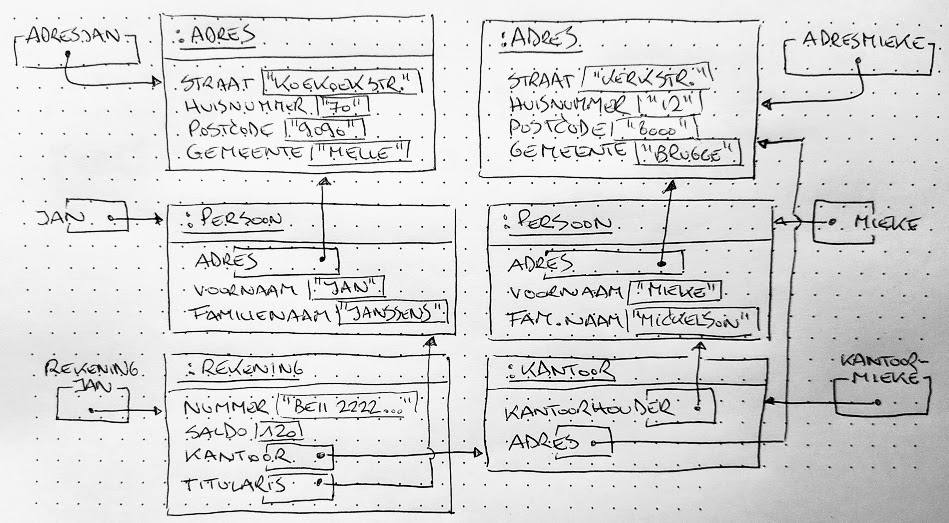 ADRESJAN
: ADRES
STRAAT "KOEKOEKSTR."
HUISNUMMER "70"
POSTCODE "9090"
GEMEENTE "MELLE"
: ADRES
STRAAT "KERKSTR."
HUISNUMMER "12"
POSTCODE "8000"
GEMEENTE "BRUGGE"
ADRESMIEKE
JAN
: PERSOON
ADRES
VOORNAAM "JAN"
FAMILIENAAM "JANSSENS"
: PERSOON
ADRES
VOORNAAM "MIEKE"
FAM.NAAM "MICKELSON"
MIEKE
REKENING
JAN
: REKENING
NUMMER "BE11 2222..."
SALDO 120
KANTOOR
TITULARIS
: KANTOOR
KANTOORHOUDER
ADRES
KANTOOR-
MIEKE